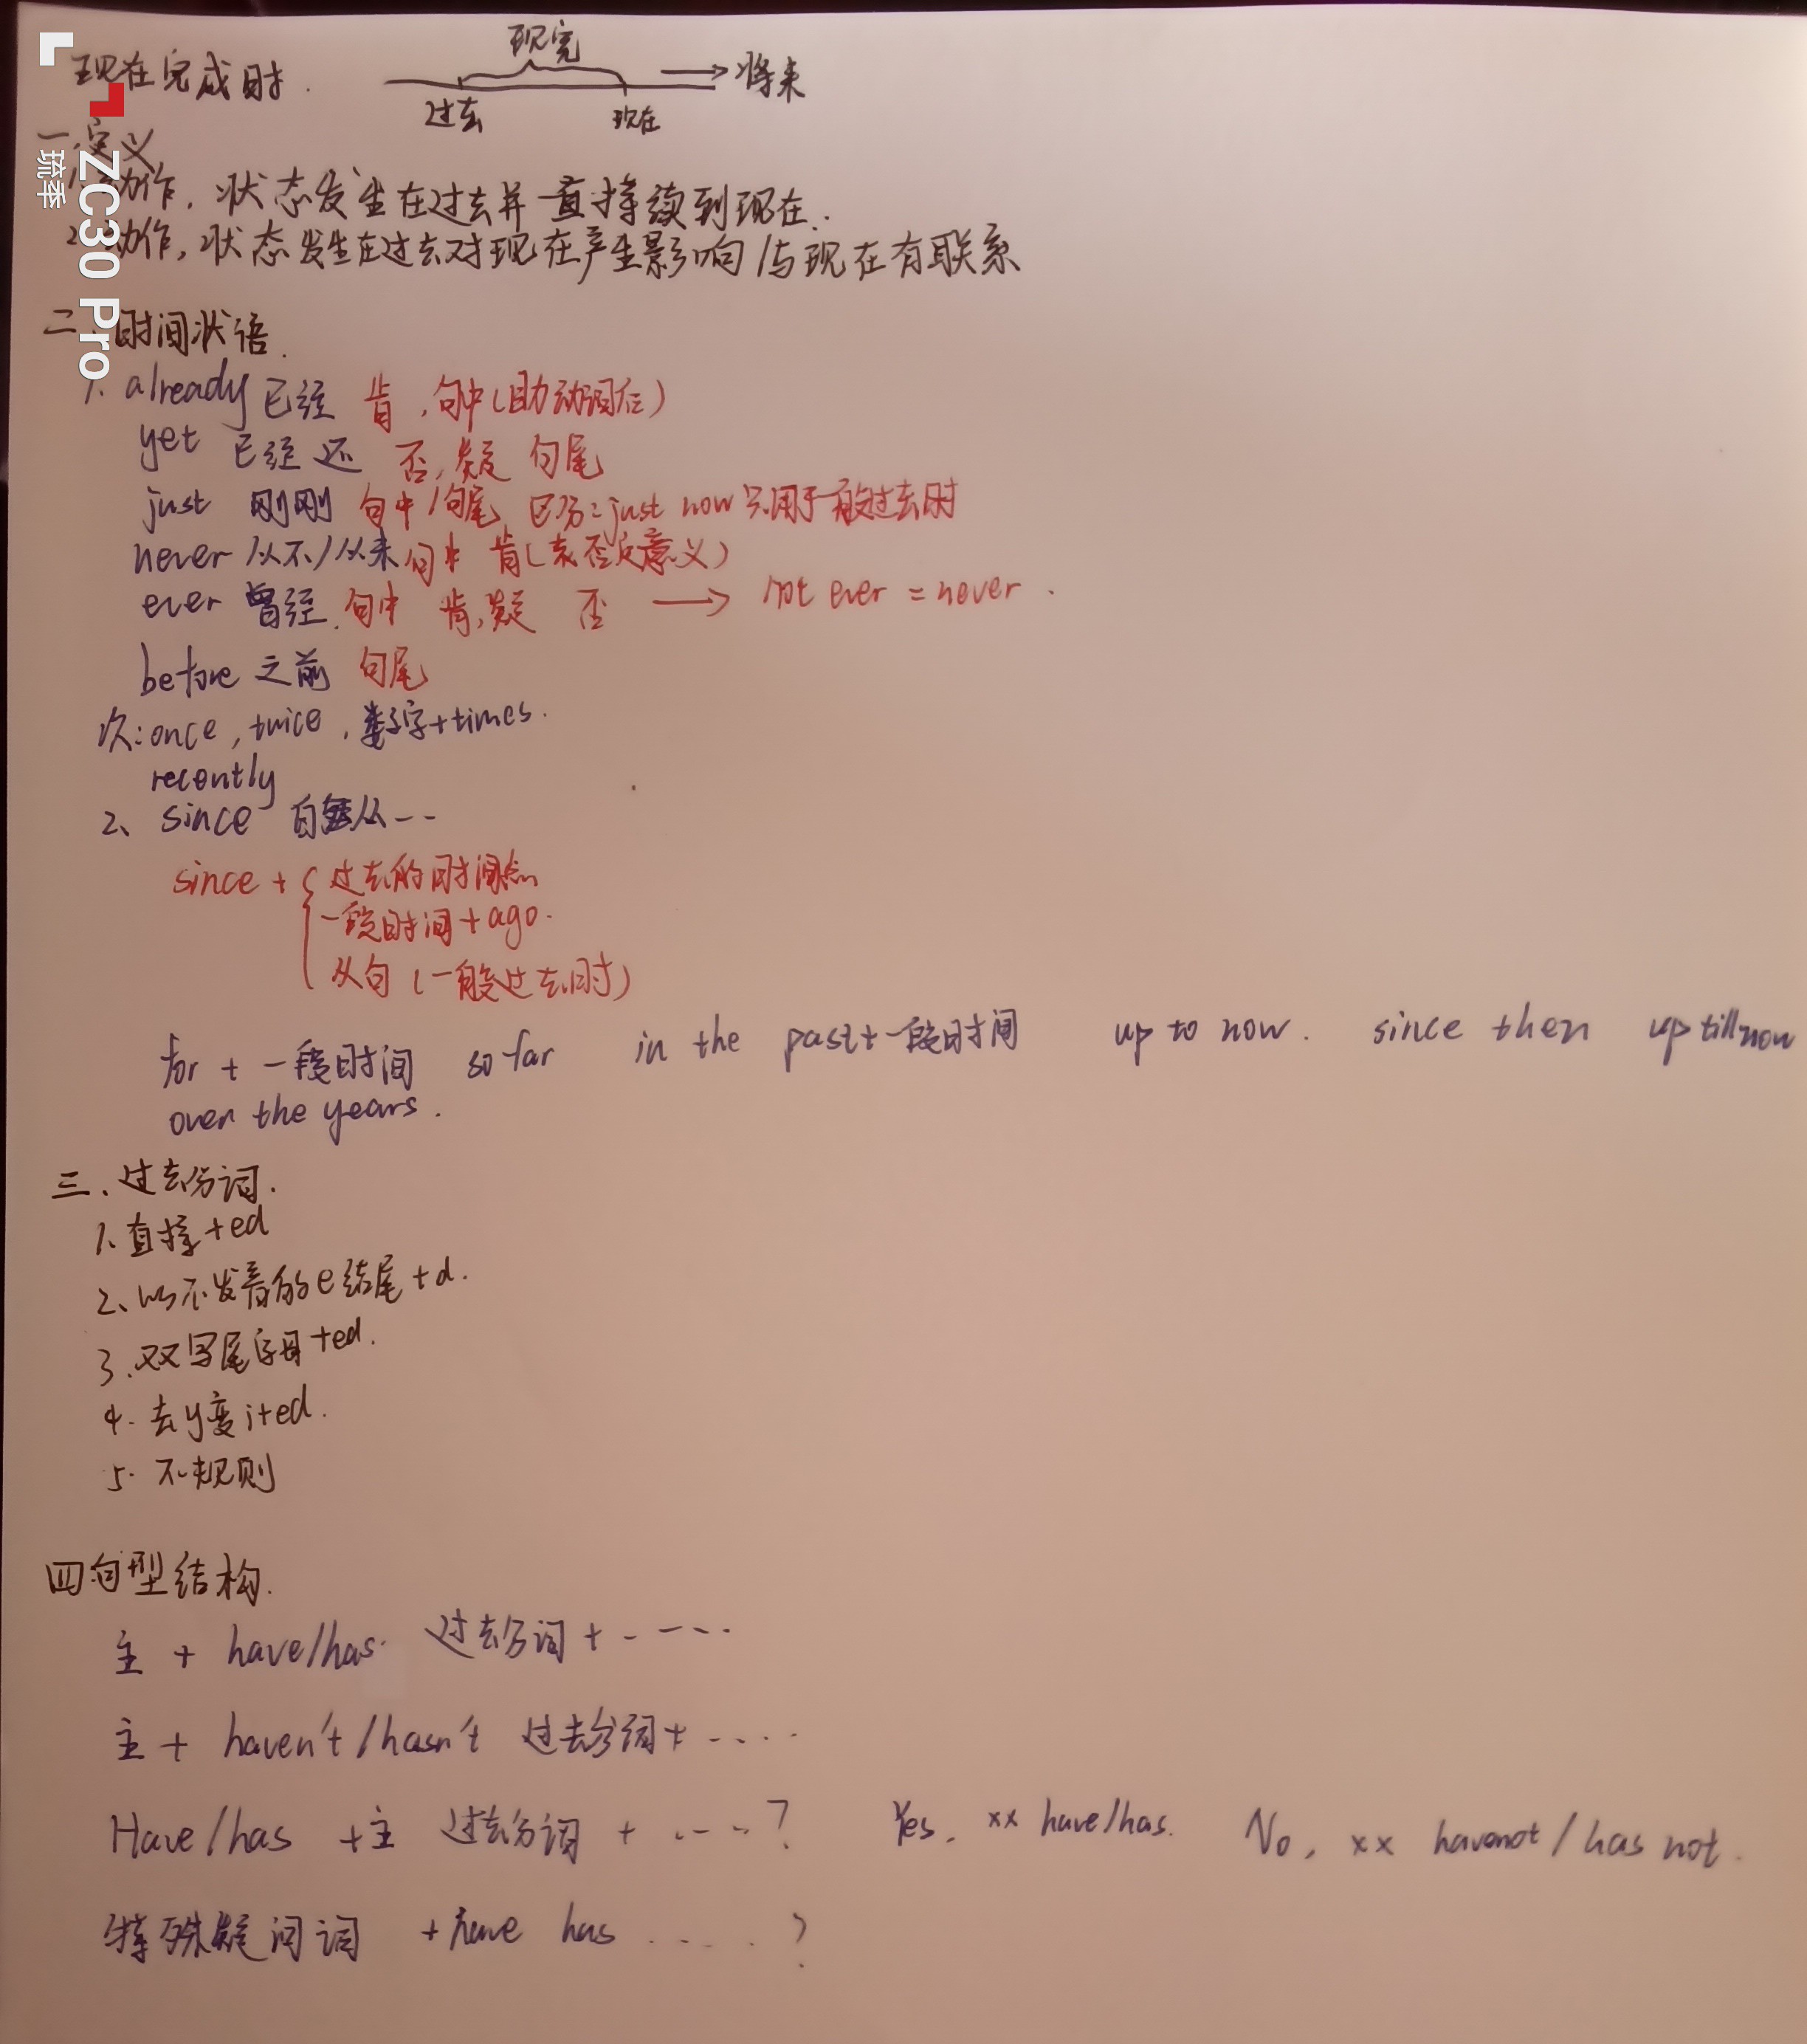 现在完成时.
现完
过去 现在 → 将来
一.定义
1.动作,状态发生在过去并一直持续到现在.
2.动作,状态发生在过去对现在产生影响/与现在有联系
琉季
ZC30 Pro
二、时间状语.
1. already 已经 肯,句中(助动词后)
yet 已经 还 否,疑 句尾
just 刚刚 句中/句尾 区分:just now 只用于一般过去时
never 从不/从来 句中 肯(表否定意义)
ever 曾经 句中 肯,疑 否 → not ever = never.
before 之前 句尾
次:once, twice, 数字+times.
recently
2、since 自从--
since + { 过去的时间点
一段时间+ago.
从句(一般过去时)
for + 一段时间 so far in the past+一段时间 up to now. since then up till now
over the years.
三、过去分词.
1、直接+ed
2、以不发音的e结尾+d.
3.双写尾字母+ed.
4.去y变i+ed.
5.不规则
四句型结构.
主 + have/has 过去分词 + -----
主 + haven't/hasn't 过去分词 + ....
Have/has +主 过去分词 + ----? Yes, xx have/has. No, xx havenot/has not.
特殊疑问词 +have has .....?